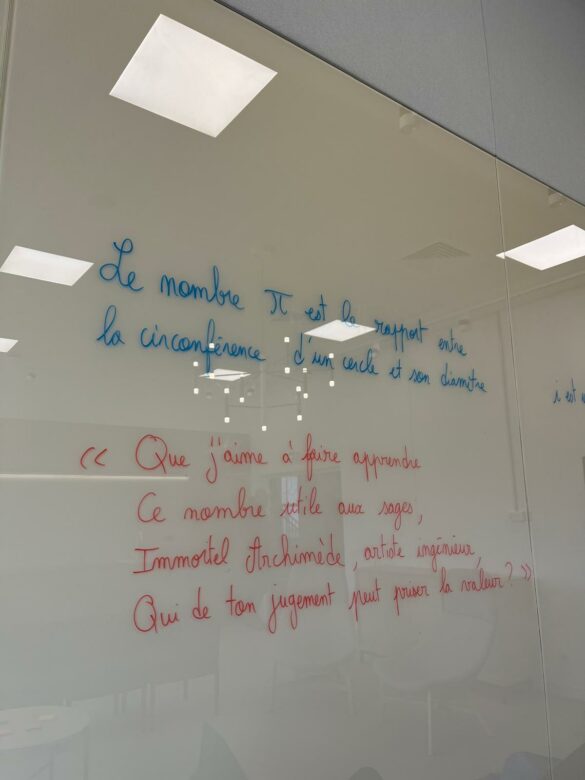 Le nombre π est le rapport entre
la circonférence d'un cercle et son diamètre
« Que j'aime à faire apprendre
Ce nombre utile aux sages,
Immortel Archimède, artiste ingénieur,
Qui de ton jugement peut priser la valeur ? »
i est